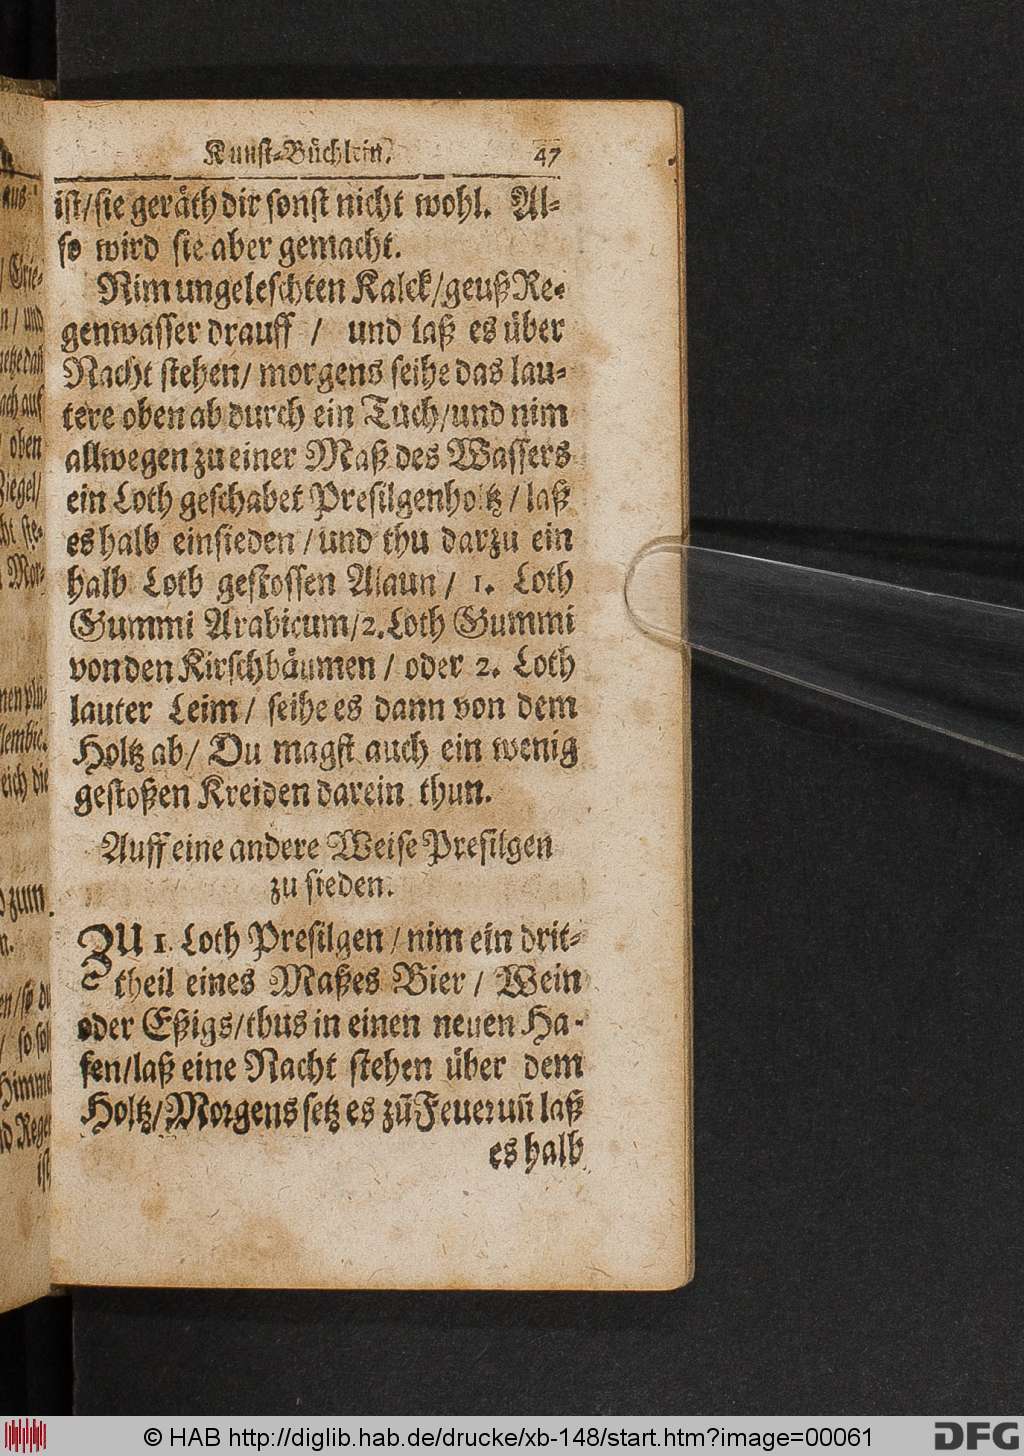 Kunst-Büchlein. 47
ist/sie geräth dir sonst nicht wohl. Al-
so wird sie aber gemacht.
Nim ungeleschten Kalck/geuß Re-
genwasser drauff / und laß es über
Nacht stehen/ morgens seihe das lau-
tere oben ab durch ein Tuch/und nim
allwegen zu einer Maß des Wassers
ein Loth geschabet Presilgenholtz / laß
es halb einsieden / und thu darzu ein
halb Loth gestossen Alaun / 1. Loth
Gummi Arabicum/2. Loth Gummi
von den Kirschbäumen / oder 2. Loth
lauter Leim / seihe es dann von dem
Holtz ab/ Du magst auch ein wenig
gestoßen Kreiden darein thun.
Auff eine andere Weise Presilgen
zu sieden.
ZU 1. Loth Presilgen / nim ein drit-
theil eines Maßes Bier / Wein
oder Eßigs/thus in einen neuen Ha-
fen/laß eine Nacht stehen über dem
Holtz/Morgens setz es zū Feuer uñ laß
es halb
aus
/ und
oben
Ziegel/
Mor-
zum
© HAB http://diglib.hab.de/drucke/xb-148/start.htm?image=00061
DFG